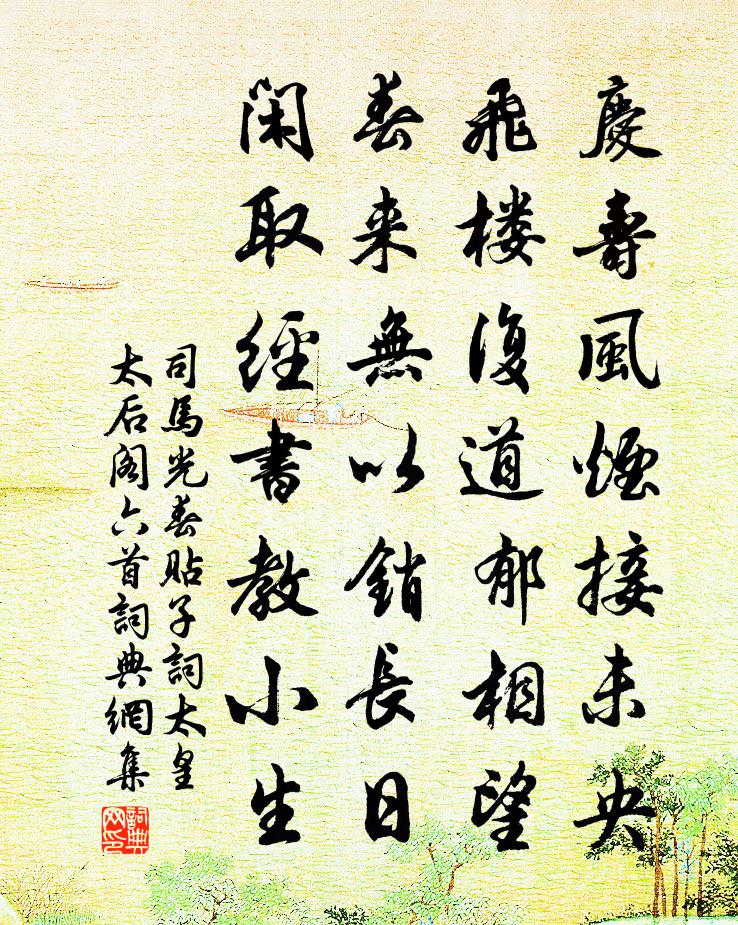 慶壽風煙接未央
飛楼復道郁相望
春来無以銷長日
閑取經書教小生
司馬光春貼子詞太皇
太后阁六首詞典網集
詞典网印